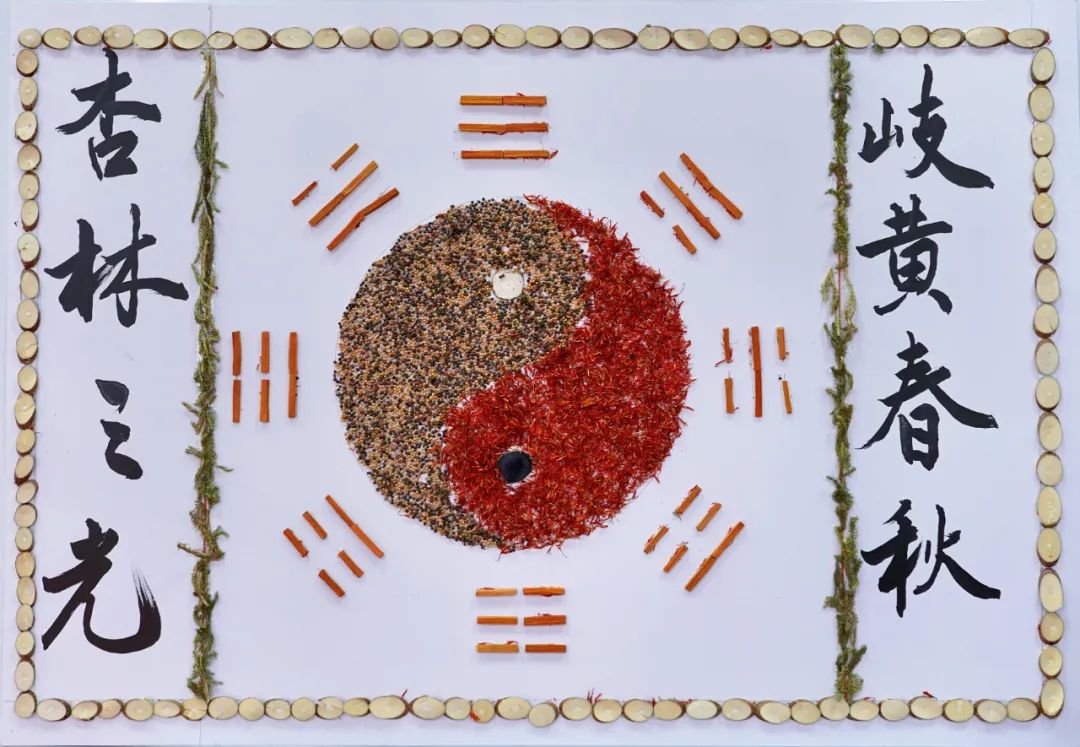 岐黄春秋
杏林之光